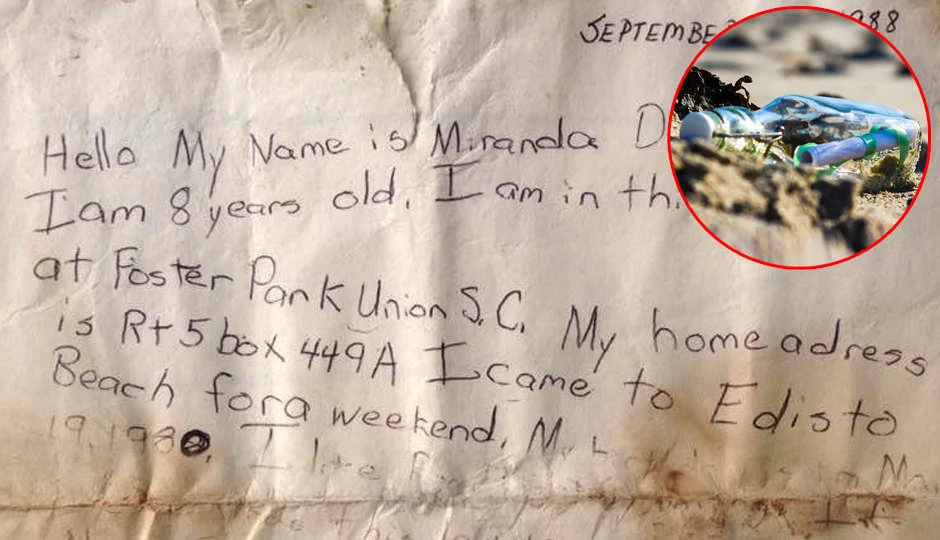 SEPTEMBE 88
Hello My Name is Miranda D
I am 8 years old. I am in th
at Foster Park Union S.C. My home adress
is Rt 5 box 449A I came to Edisto
Beach for a weekend, M
19, 1980. I like